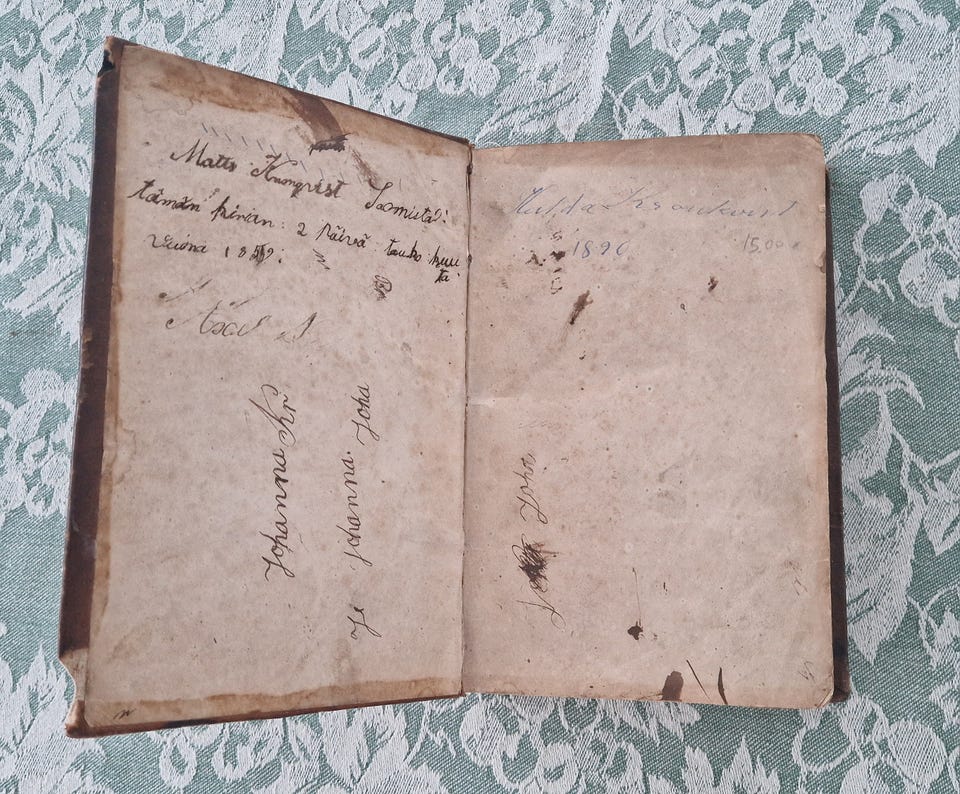 Matts Krunqvist Saomista?:
tämän kirian: 2 Päivä: touko kuu
ta
Vuona 1859:
Axel
Johanna Kr
Jo Johanna. Joha
Hulda Kronkvist
1890
15,00
Joha